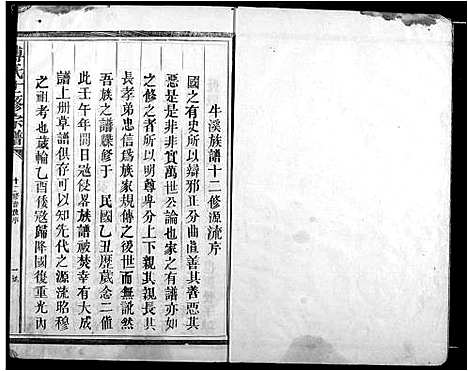 牛溪族譜十二修源流序
國之有史所以辯邪正分曲直善其善惡其
惡是是非非實萬世公論也家之有譜亦如
之修之者所以明尊卑分上下親其親長其
長孝弟忠信爲族家規傳之後世而無訛然
吾族之譜牒修于　民國乙丑歷歲念二値
此壬午年間日冦侵畧族譜被焚幸有大成
譜上册草譜俱存可以知先代之源流昭穆
之祖考也歲輪乙酉倭冦歸降國復重光內
氏十二修宗譜
十二修源流序
一